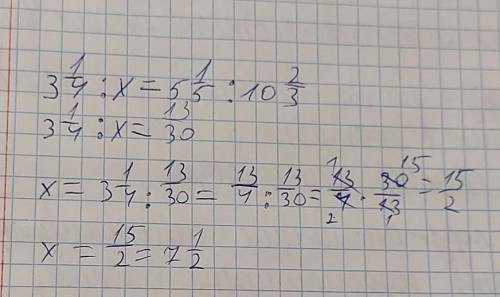 3 1/4 : x = 5 1/5 : 10 2/3
3 1/4 : x = 13/30
x = 3 1/4 : 13/30 = 13/4 : 13/30 = 13/4 · 30/13 = 15/2 1 2 15 1
x = 15/2 = 7 1/2